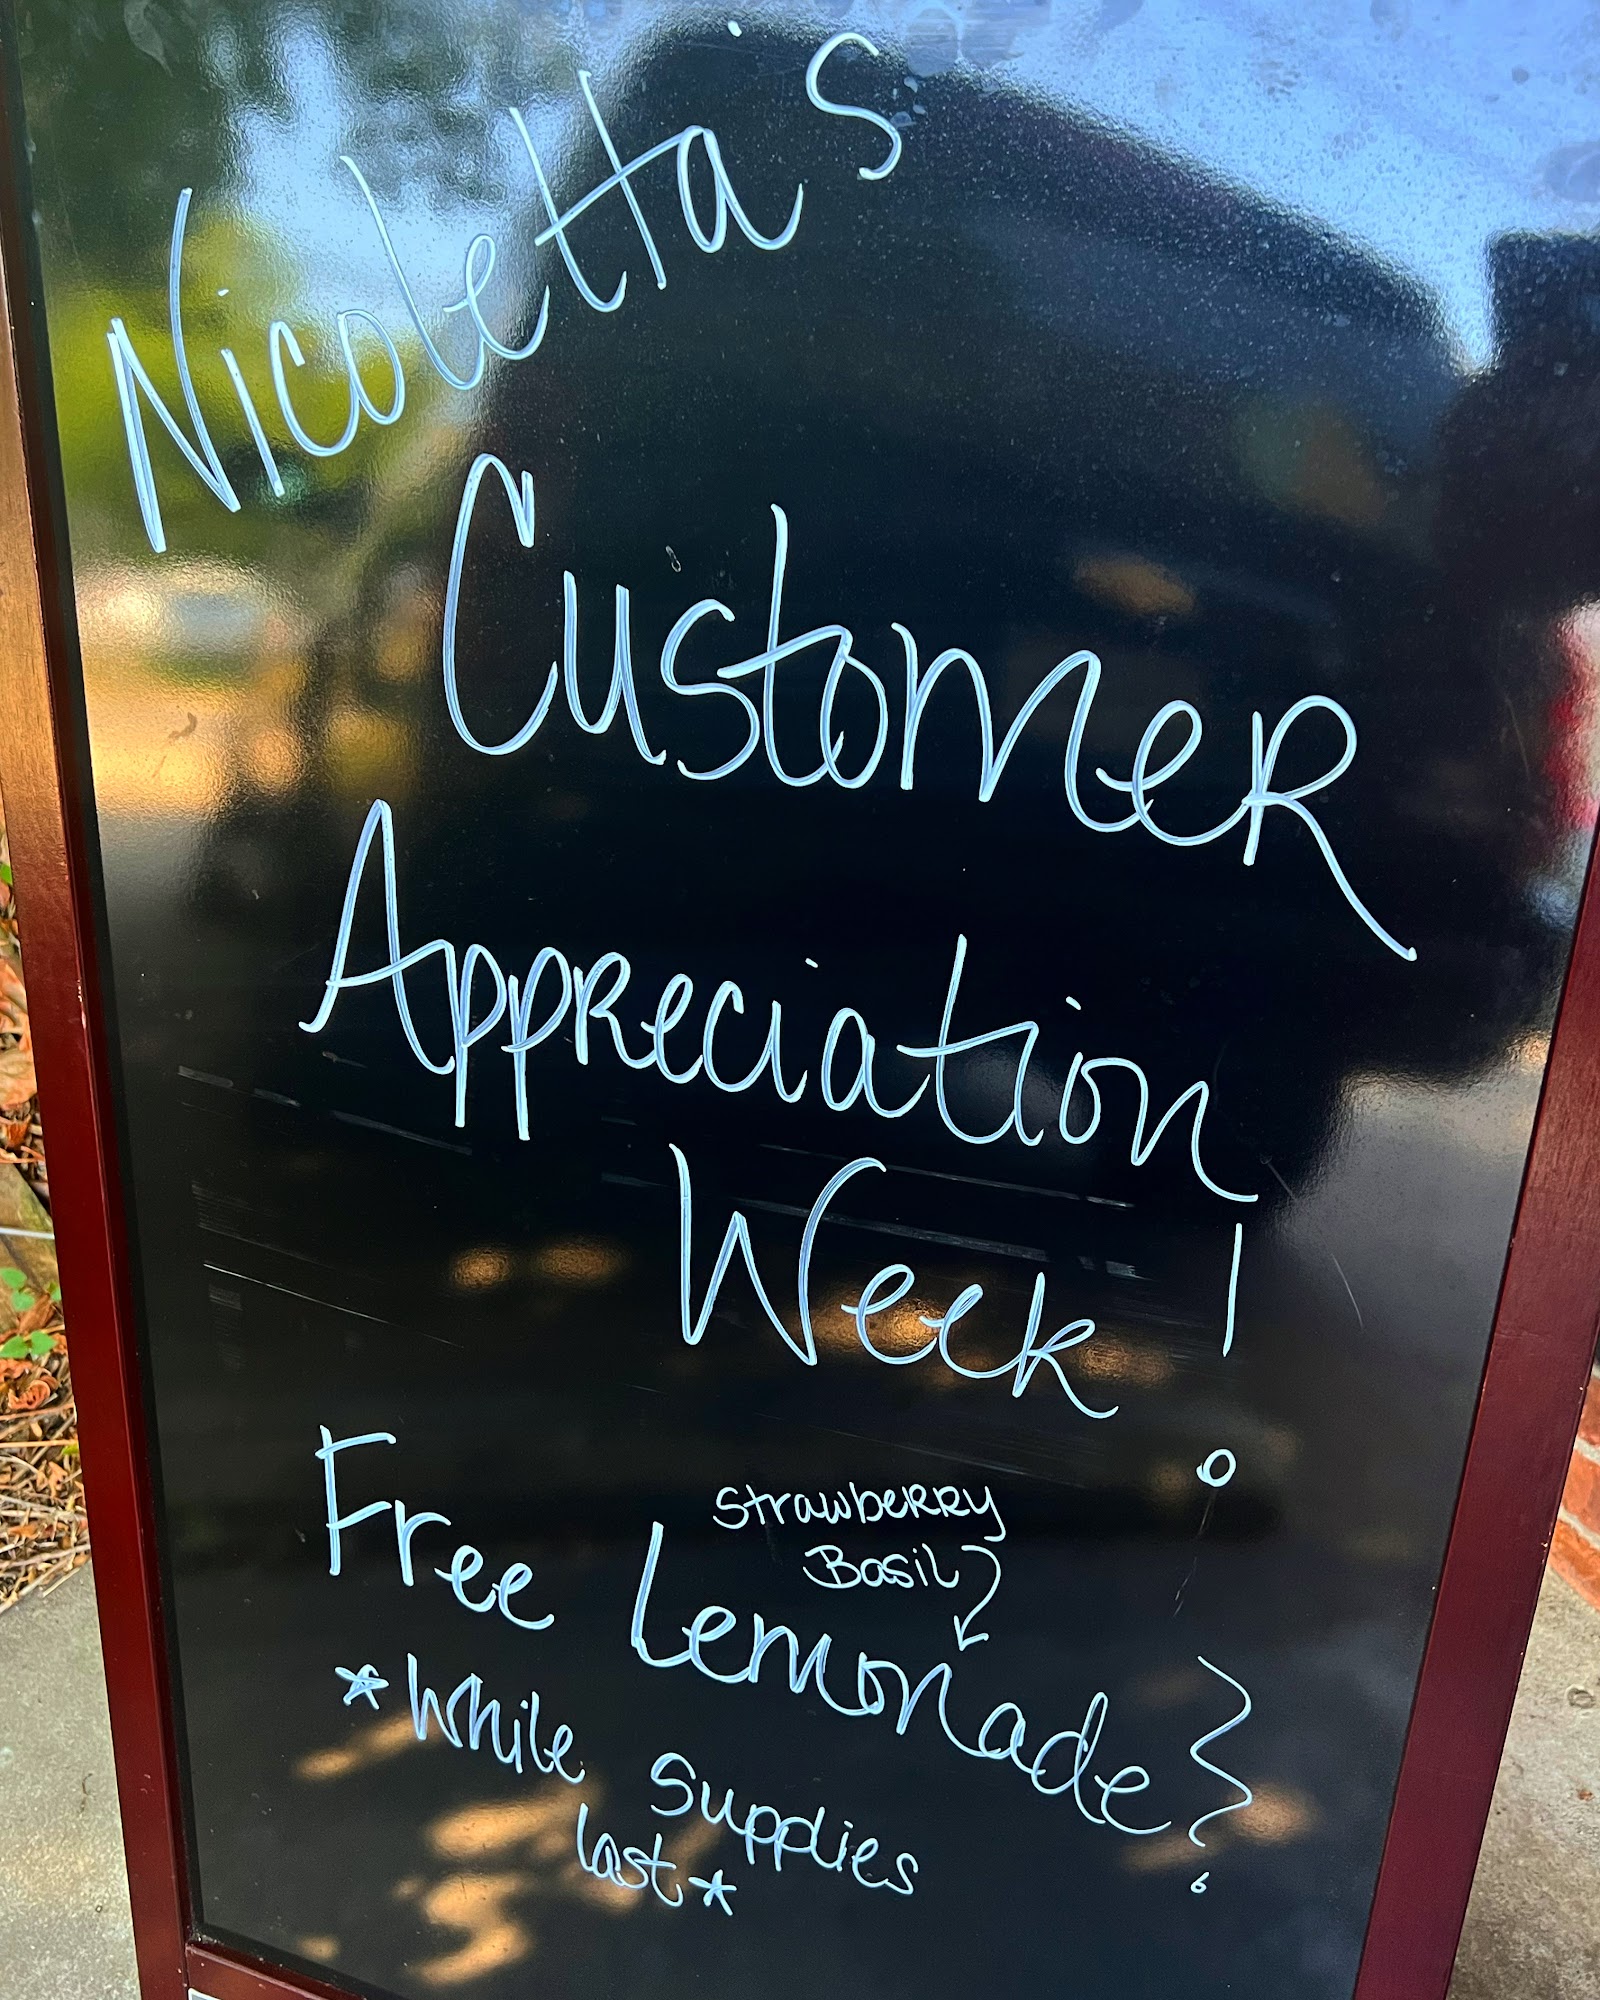 Nicoletta's
Customer
Appreciation
Week!
Strawberry
Basil
Free Lemonade
*While supplies
last*